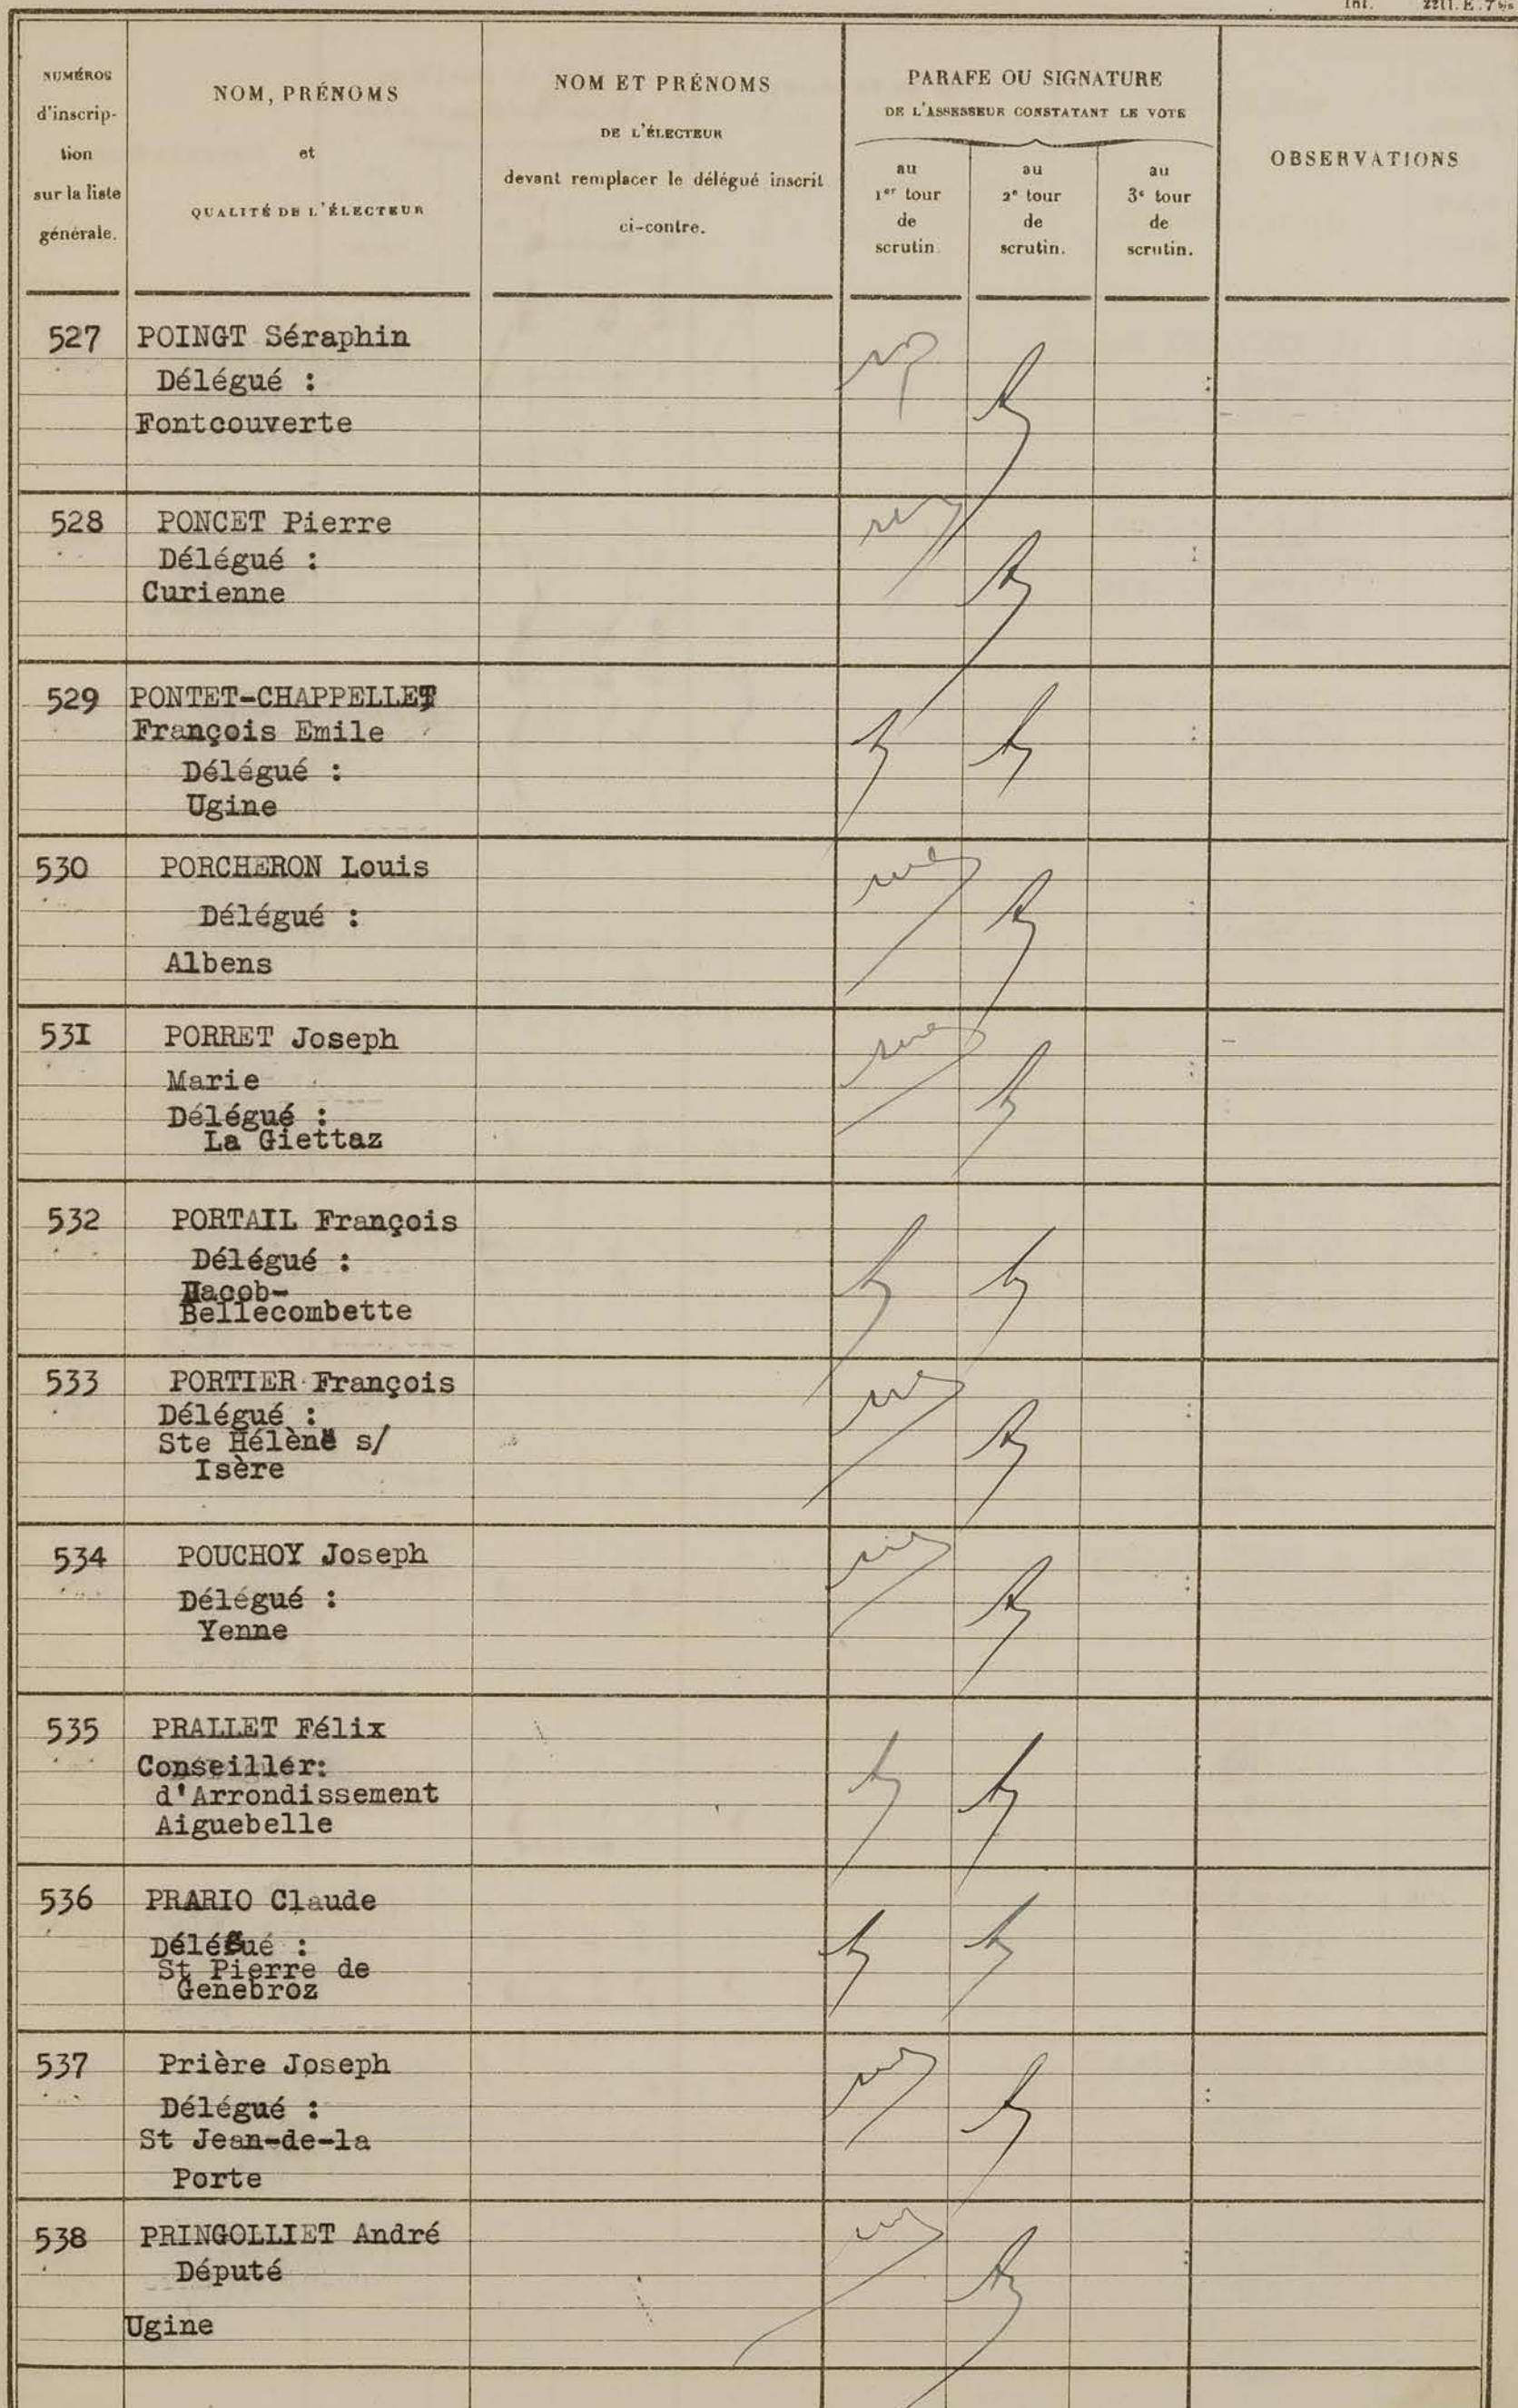 Int. 2211. E. 7 bis
NUMÉROS
d'inscrip-
tion
sur la liste
générale.
NOM, PRÉNOMS
et
QUALITÉ DE L'ÉLECTEUR
NOM ET PRÉNOMS
DE L'ÉLECTEUR
devant remplacer le délégué inscrit
ci-contre.
PARAFE OU SIGNATURE
DE L'ASSESSEUR CONSTATANT LE VOTE
au
1er tour
de
scrutin.
au
2e tour
de
scrutin.
au
3e tour
de
scrutin.
OBSERVATIONS
527 POINGT Séraphin
Délégué :
Fontcouverte
528 PONCET Pierre
Délégué :
Curienne
529 PONTET-CHAPPELLET
François Emile
Délégué :
Ugine
530 PORCHERON Louis
Délégué :
Albens
53I PORRET Joseph
Marie
Délégué :
La Giettaz
532 PORTAIL François
Délégué :
Jacob-
Bellecombette
533 PORTIER François
Délégué :
Ste Hélène s/
Isère
534 POUCHOY Joseph
Délégué :
Yenne
535 PRALLET Félix
Conseiller:
d'Arrondissement
Aiguebelle
536 PRARIO Claude
Délégué :
St Pierre de
Genebroz
537 Prière Joseph
Délégué :
St Jean-de-la
Porte
538 PRINGOLLIET André
Député
Ugine